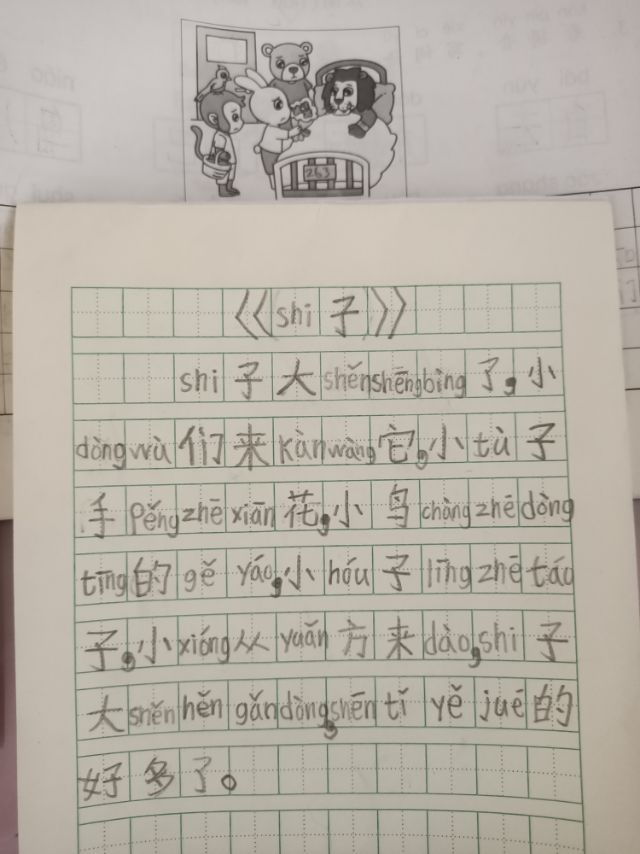 263
《shi子》
shi子大shěnshēngbìng了，小
dòngwù们来kànwàng它，小tù子
手pěngzhēxiān花，小鸟chàngzhēdòng
tīng的gěyáo，小hóu子līngzhētáo
子，小xióng从yuǎn方来dào，shi子
大shěnhěngǎndòng，shēntǐyějué的
好多了。